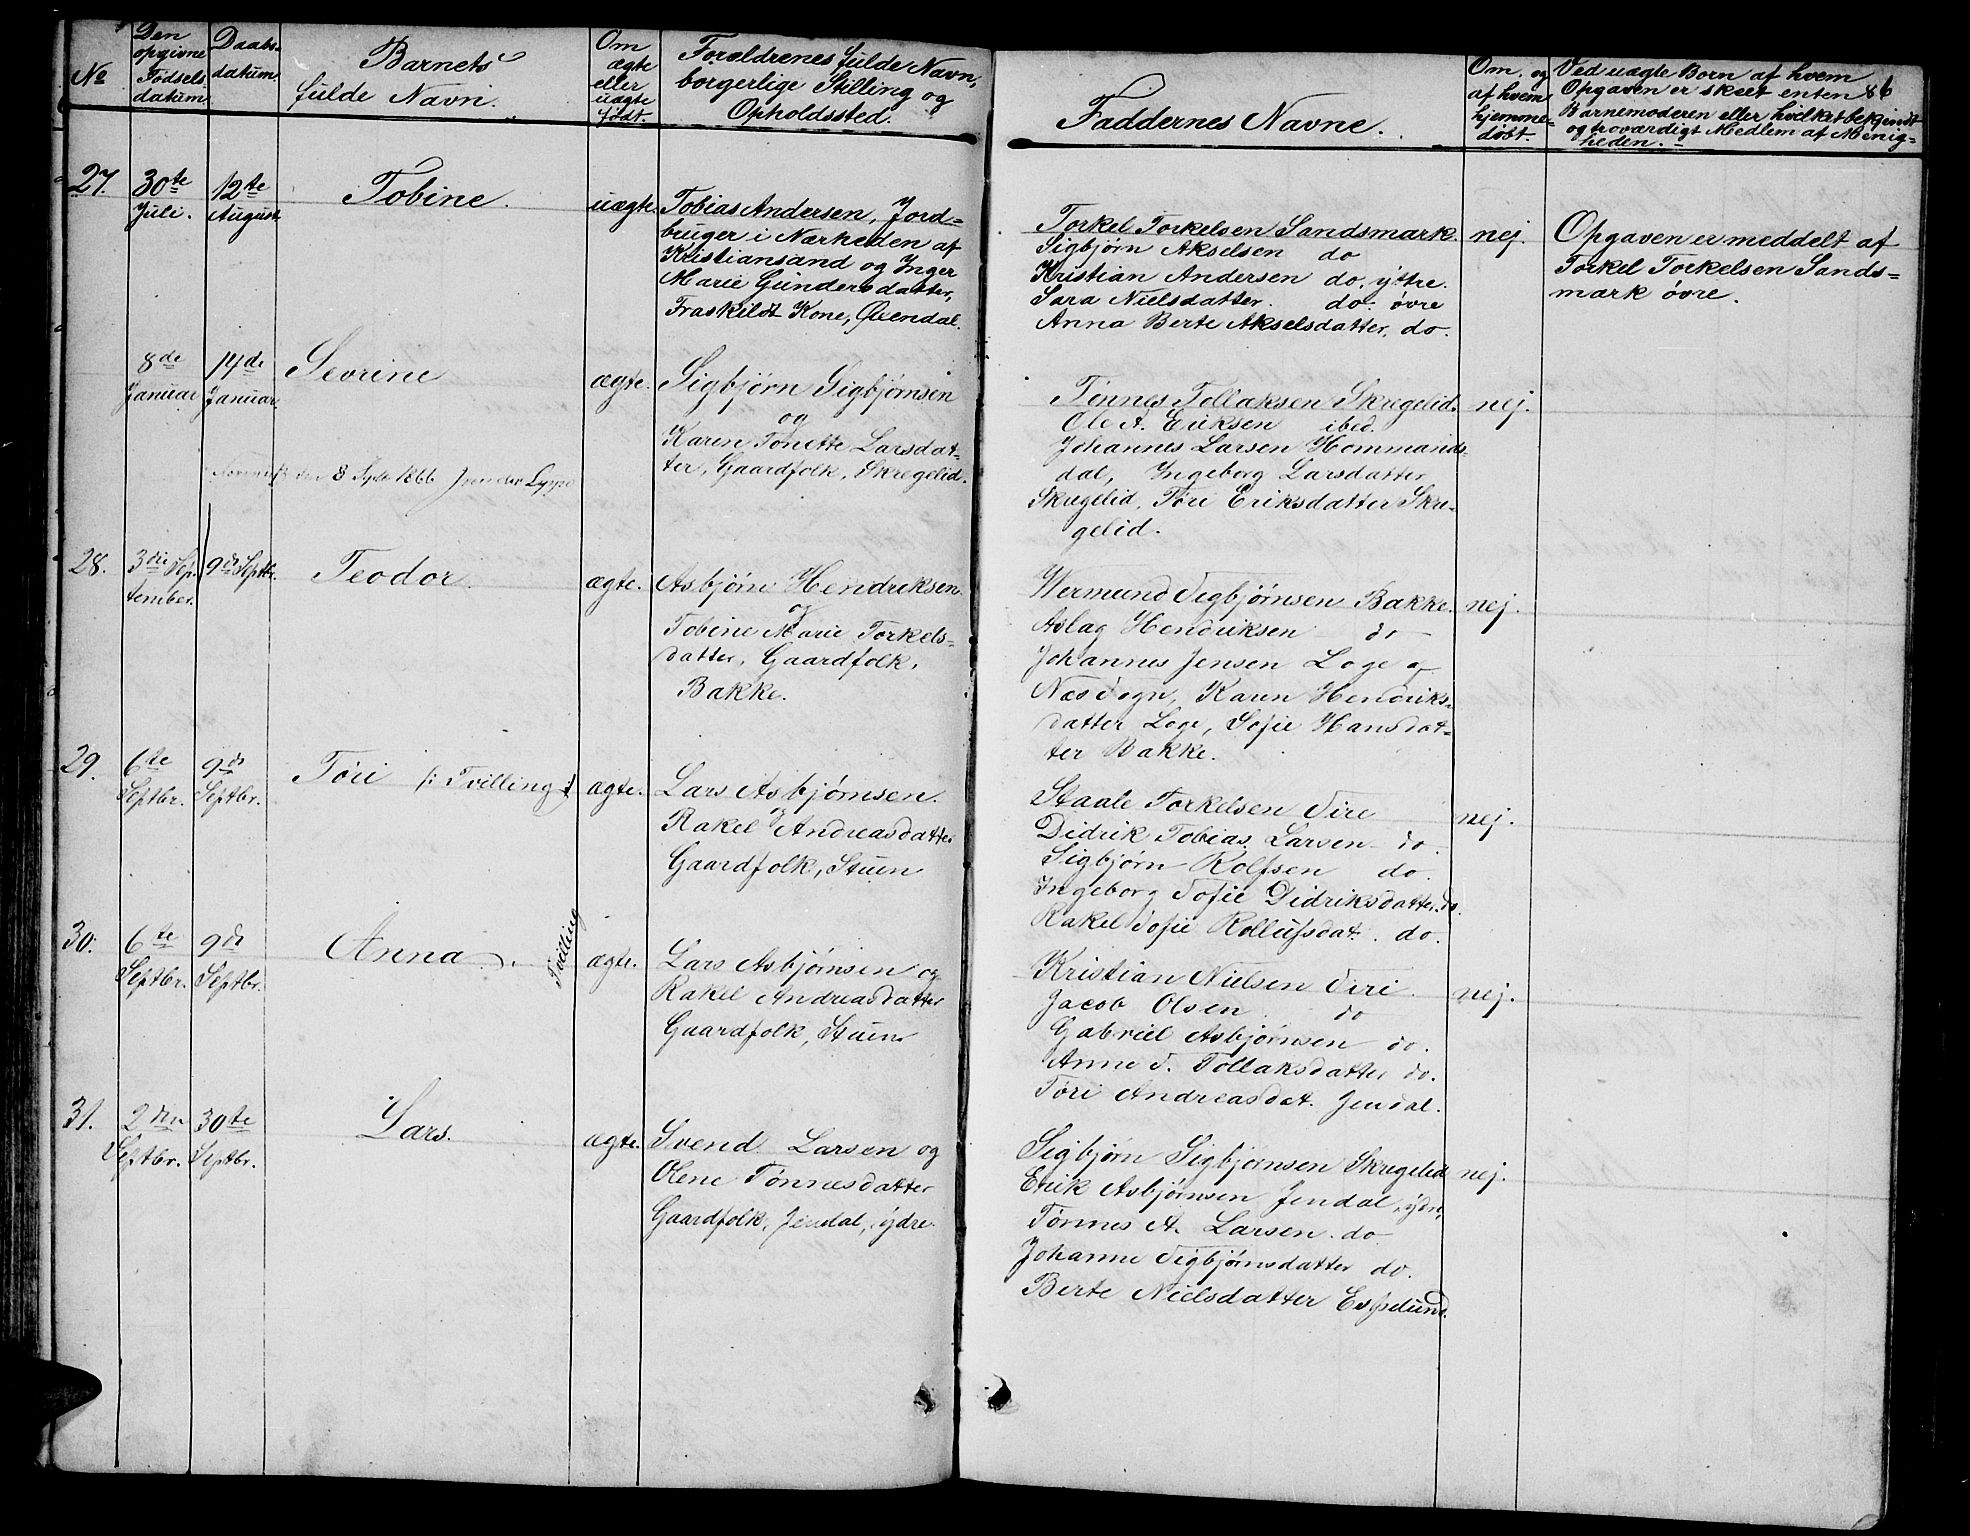 No
Den
opgivne
Fødsels
datum
Daabs-
datum
Barnets
fulde Navn.
Om
ægte
eller
uægte
født.
Forældrenes fulde Navn,
borgerlige Stilling og
Opholdssted.
Faddernes Navne.
Om, og
af hvem
hjemme-
døbt.
Ved uægte Børn af hvem
Opgaven er skeet enten
86
Barnemoderen eller hvilket bekjendt
og troværdigt Medlem af Menig-
heden.
27.
30te
Juli.
12te
August
Tobine.
uægte.
Tobias Andersen, Jord-
bruger i Nærheden af
Kristiansand og Inger
Marie Gundersdatter,
Fraskildt Kone, Øvendal.
Torkel Torkelsen Sandsmark.
Sigbjørn Akselsen do
Kristian Andersen do, yttre.
Sara Nielsdatter. do. øvre
Anna Berte Akselsdatter, do.
nej.
Opgaven er meddelt af
Torkel Torkelsen Sands-
mark øvre.
8de
Januar
14de
Januar
Sevrine
ægte.
Sigbjørn Sigbjørnsen
og
Karen Tonette Larsdat-
ter, Gaardfolk, Skregelid.
den 8 1866
Tønnes Tollaksen Skregelid.
Ole A. Eriksen ibed.
Johannes Larsen Hommands-
dal, Ingeborg Larsdatter
Skregelid, Tøri Eriksdatter Skre-
gelid.
nej.
28.
3die Sep-
tember.
9de Septbr.
Teodor.
ægte.
Asbjørn Hendriksen
og
Tobine Marie Torkels-
datter, Gaardfolk,
Bakke.
Wermund Sigbjørnsen Bakke.
Aslag Hendriksen do
Johannes Jensen Loge og
Næsdegn, Karen Hendriks-
datter Loge, Sofie Hansdat-
ter Bakke.
nej.
29.
6te
Septbr.
9de
Septbr.
Tøri (: Tvilling :)
ægte.
Lars Asbjørnsen
og
Rakel Andreasdatter
Gaardfolk, Stuen
Staale Torkelsen Sire
Didrik Tobias Larsen do
Sigbjørn Rolfsen do.
Ingeborg Sofie Didriksdatter do.
Rakel Sofie Rollufsdat. do.
nej.
30.
6te
Septbr.
9de
Septbr.
Anna.
Tvilling
ægte.
Lars Asbjørnsen og
Rakel Andreasdatter
Gaardfolk, Stuen
Kristian Nielsen Siri
Jacob Olsen do
Gabriel Asbjørnsen do.
Anne S. Tollaksdatter do.
Tøri Andreasdat. Jendal.
nej.
31.
2den
Septbr.
30te
Septbr.
Lars.
ægte.
Svend Larsen og
Olene Tønnesdatter
Gaardfolk, Jendal, ydre
Sigbjørn Sigbjørnsen Skregelid
Erik Asbjørnsen Jendal, ydre,
Tønnes A. Larsen do
Johanne Sigbjørnsdatter do.
Berte Nielsdatter
nej.